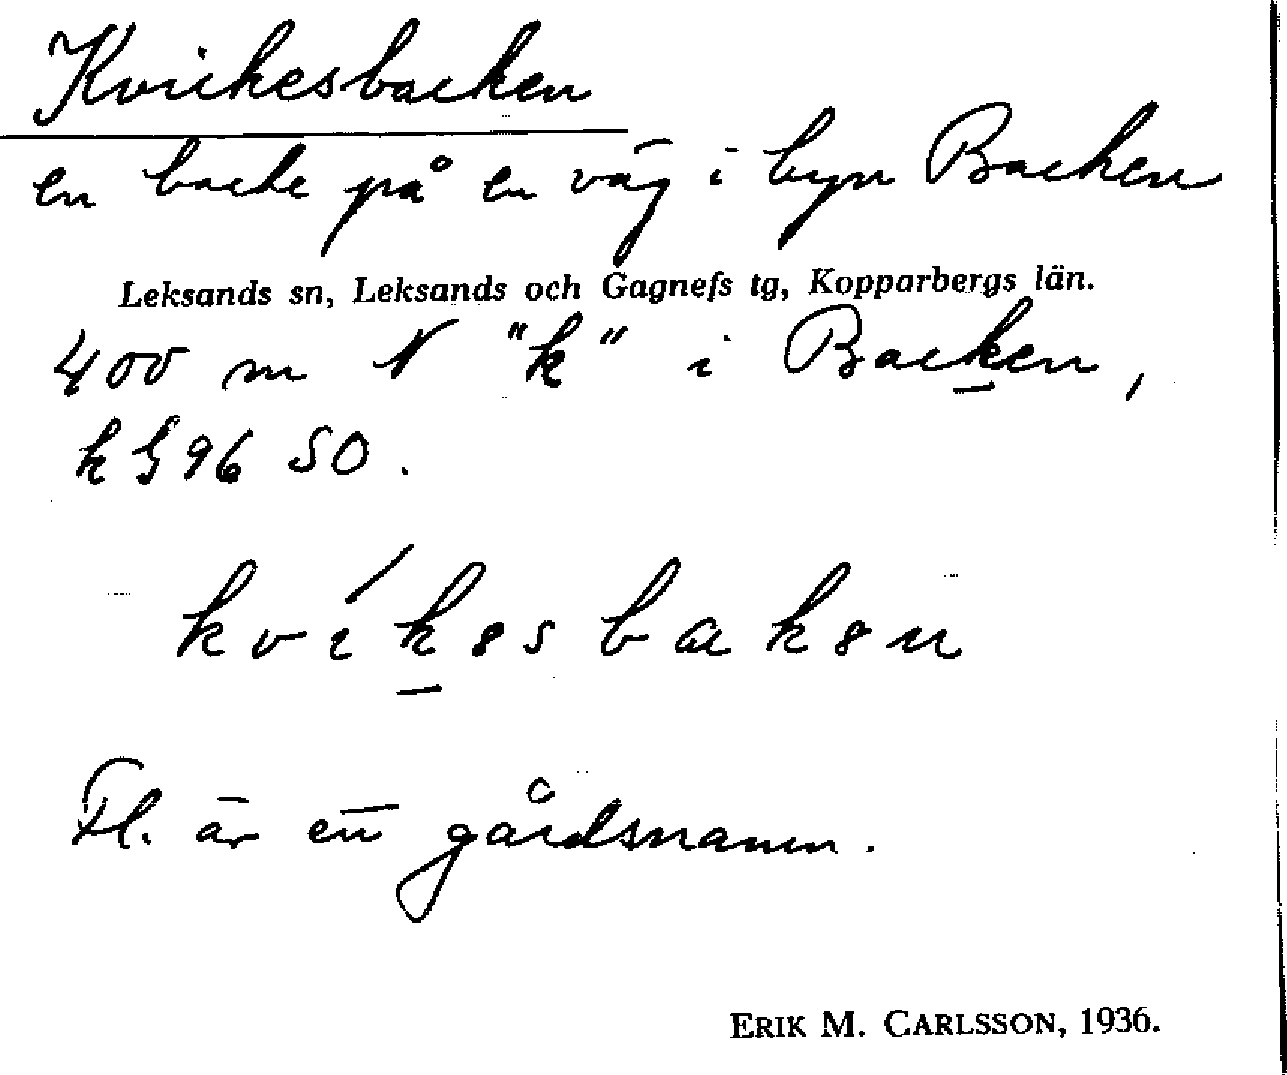 Kvickesbacken
en backe på en väg i byn Backen
Leksands sn, Leksands och Gagnefs tg, Kopparbergs län.
400 m N "k" i Backen,
k § 96 SO.
kvíkəsbakən
Fl. är ett gårdsnamn.
ERIK M. CARLSSON, 1936.